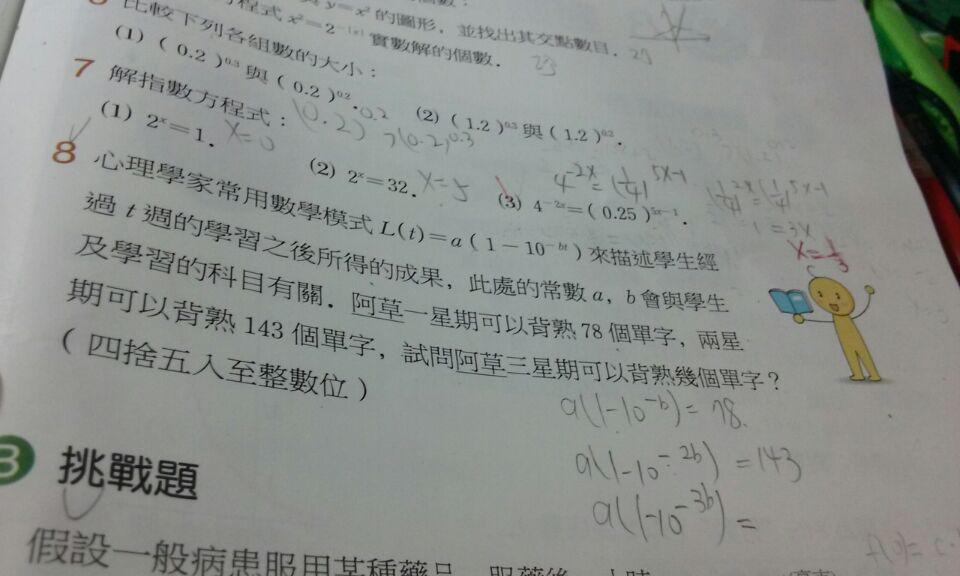 與 y=x² 的圖形，並找出其交點數目．
方程式 x²=2^{-|x|} 實數解的個數．
比較下列各組數的大小：
(1) (0.2)^{0.3} 與 (0.2)^{0.2}． (2) (1.2)^{0.3} 與 (1.2)^{0.2}．
(0.2)^{0.2} > (0.2)^{0.3}
7 解指數方程式：
(1) 2^x=1． x=0 (2) 2^x=32． x=5 (3) 4^{-2x}=(0.25)^{5x-1}．
4^{-2x}=(1/4)^{5x-1}
1=3x
x=1/3
8 心理學家常用數學模式 L(t)=a(1-10^{-bt}) 來描述學生經
過 t 週的學習之後所得的成果，此處的常數 a，b 會與學生
及學習的科目有關．阿草一星期可以背熟 78 個單字，兩星
期可以背熟 143 個單字，試問阿草三星期可以背熟幾個單字？
（四捨五入至整數位）
a(1-10^{-b})=78
a(1-10^{-2b})=143
a(1-10^{-3b})=
挑戰題
假設一般病患服用某種藥品